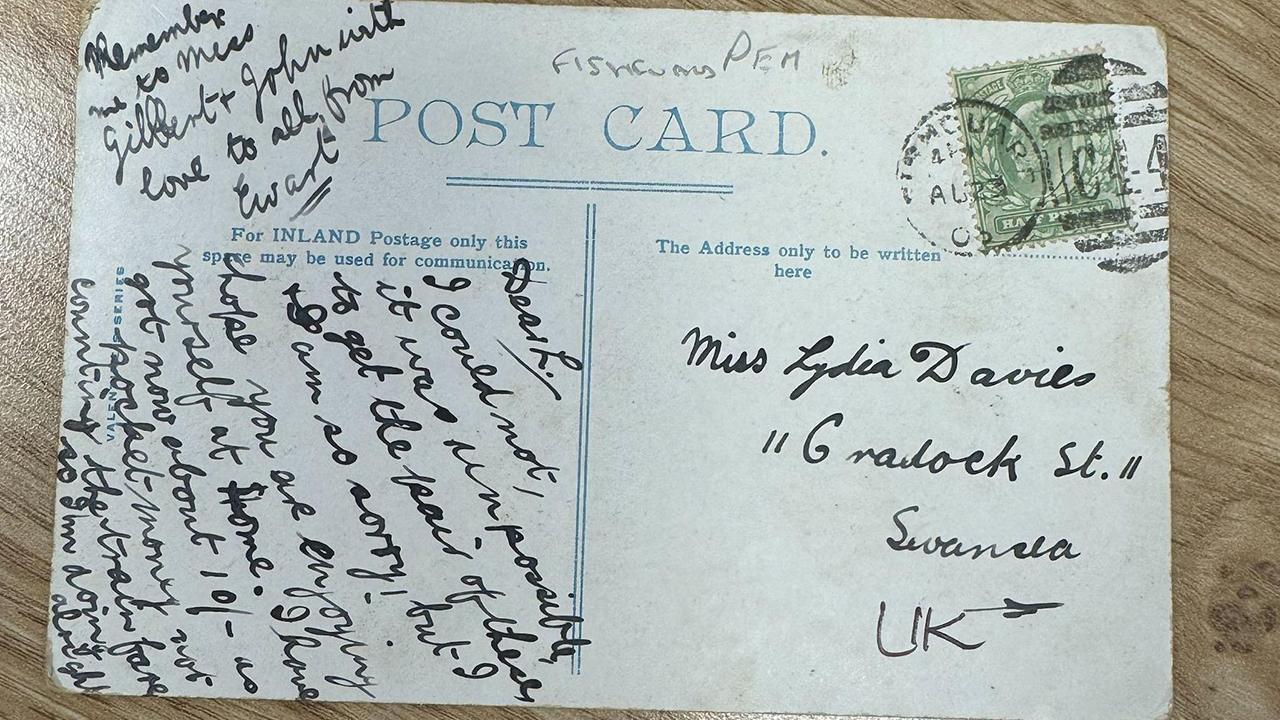 Remember
me to Miss
Gilbert + John with
love to all, from
Ewart
PEM
POST CARD.
AU
For INLAND Postage only this
space may be used for communication.
The Address only to be written
here
Dear L:-
I could not,
it was unpossible,
to get the pair of these
& I am so sorry! but I
hope you are enjoying
yourself at Home. I have
got now about 10/- as
pocket-money not
counting the train fare
so I'm doing
alright
SERIES
Miss Lydia Davies
"Cradock St."
Swansea
UK